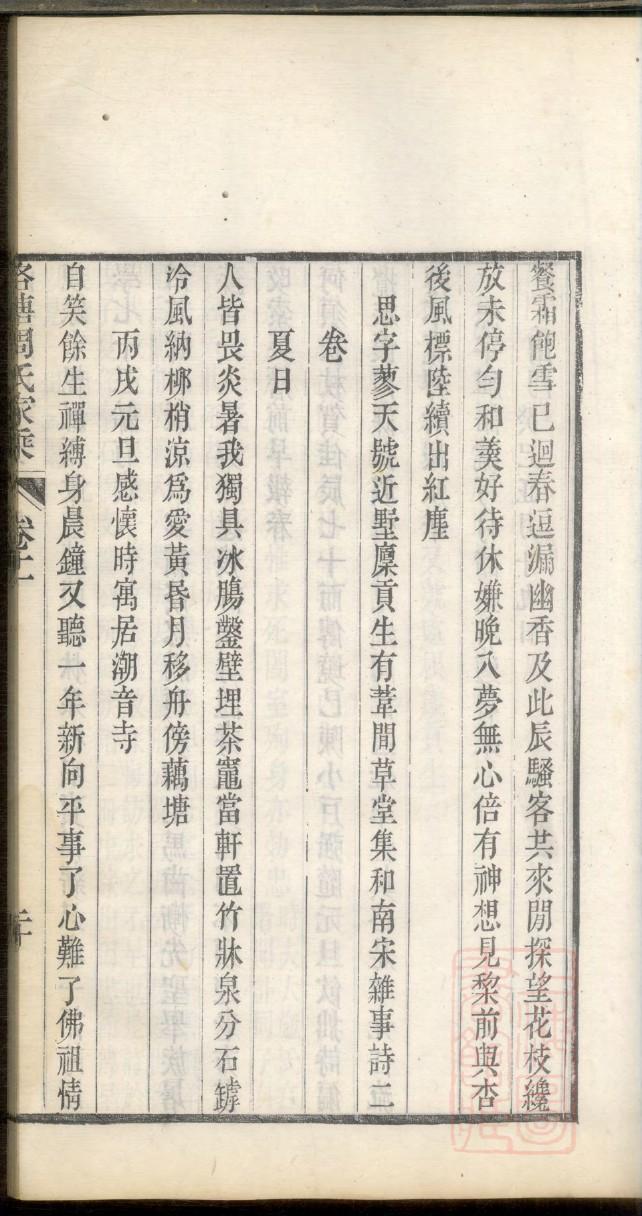 餐霜飽雪已迴春逗漏幽香及此辰騷客共來閒探望花枝纔
放未停勻和羹好待休嫌晚入夢無心倍有神想見棃前與杏
後風標陸續出紅塵
思字蓼天號近墅廩貢生有葦間草堂集和南宋雜事詩二
卷
夏日
人皆畏炎暑我獨具冰腸鑿壁埋茶竈當軒置竹牀泉分石罅
冷風納桺梢涼爲愛黃昏月移舟傍藕塘
丙戌元旦感懷時寓居潮音寺
自笑餘生禪縛身晨鐘又聽一年新向平事了心難了佛祖情
周氏家乘
卷十二
二十